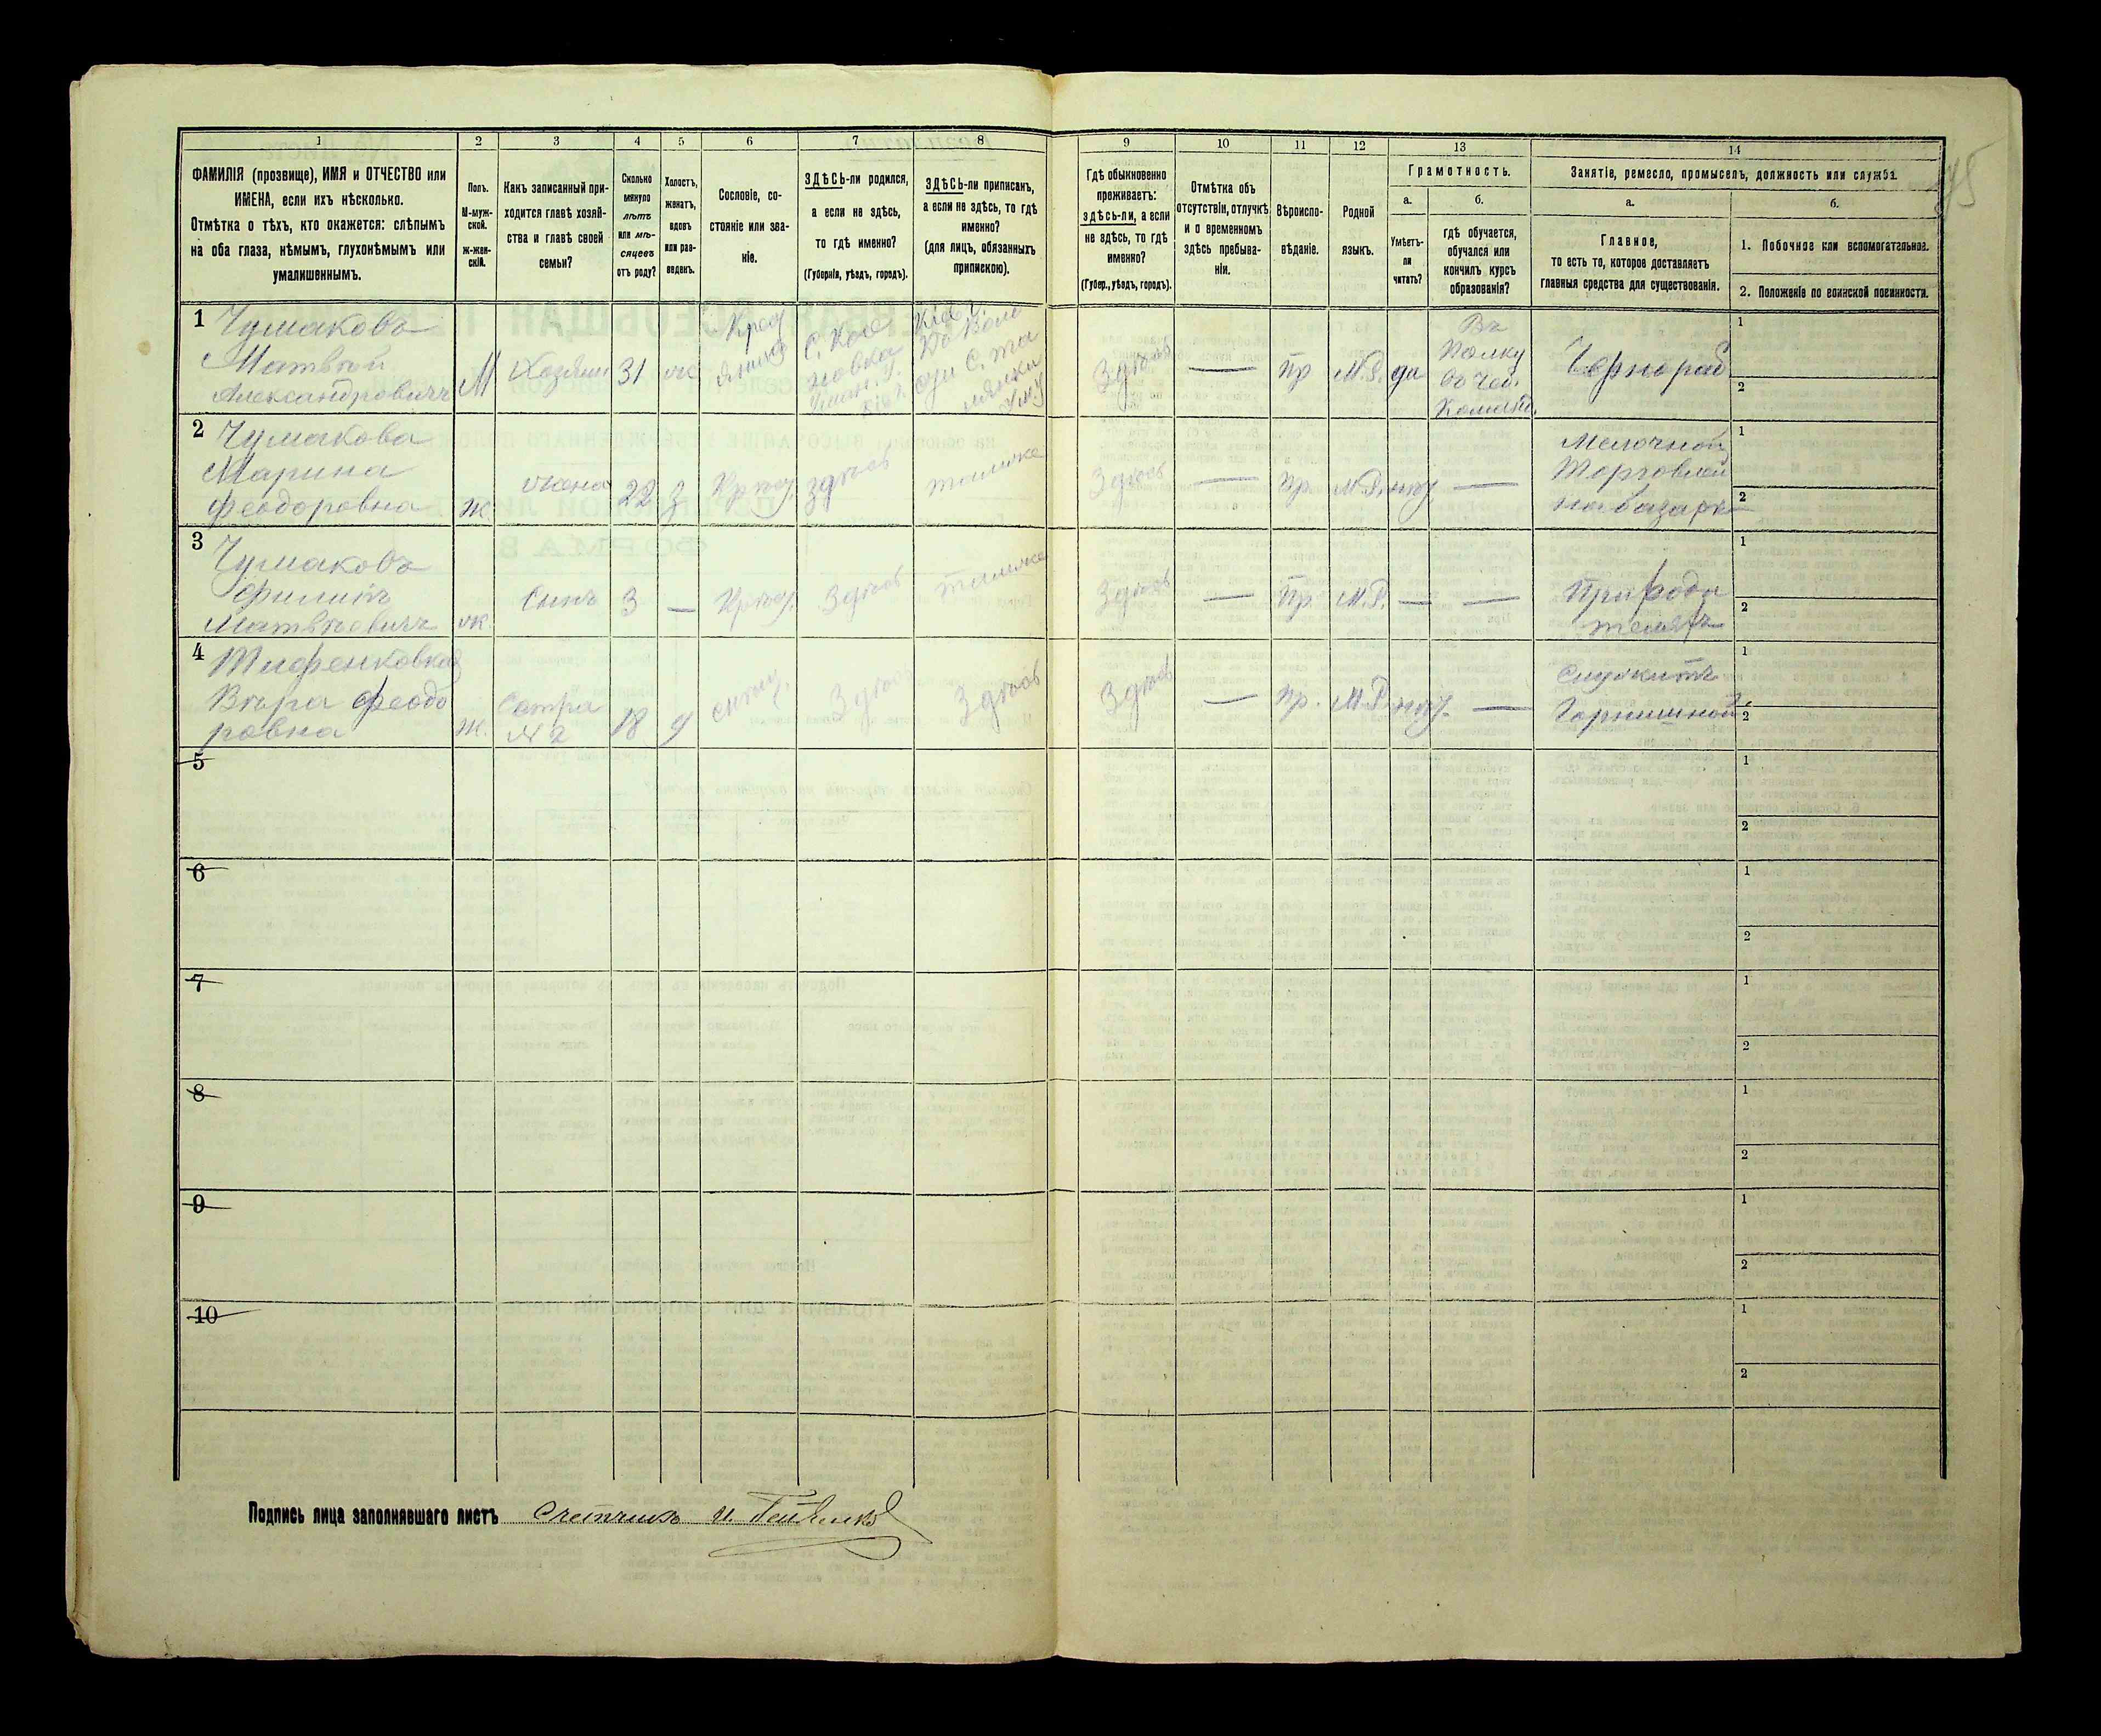 1 2 3 4 5 6 7 8 9 10 11 12 13 14
ФАМИЛІЯ (прозвище), ИМЯ и ОТЧЕСТВО или
ИМЕНА, если ихъ нѣсколько.
Отмѣтка о тѣхъ, кто окажется: слѣпымъ
на оба глаза, нѣмымъ, глухонѣмымъ или
умалишеннымъ.
Полъ.
М-муж-
ской.
ж-жен-
скій.
Какъ записанный при-
ходится главѣ хозяй-
ства и главѣ своей
семьи?
Сколько
минуло
лѣтъ
или мѣ-
сяцевъ
отъ роду?
Холостъ,
женатъ,
вдовъ
или раз-
веденъ.
Сословіе, со-
стояніе или зва-
ніе.
ЗДѢСЬ-ли родился,
а если не здѣсь,
то гдѣ именно?
(Губернія, уѣздъ, городъ).
ЗДѢСЬ-ли приписанъ,
а если не здѣсь, то гдѣ
именно?
(для лицъ, обязанныхъ
припискою).
Гдѣ обыкновенно
проживаетъ:
здѣсь-ли, а если
не здѣсь, то гдѣ
именно?
(Губер., уѣздъ, городъ).
Отмѣтка объ
отсутствіи, отлучкѣ
и о временномъ
здѣсь пребыва-
ніи.
Вѣроиспо-
вѣданіе.
Родной
языкъ.
Грамотность.
а.
Умѣетъ-
ли
читать?
б.
гдѣ обучается,
обучался или
кончилъ курсъ
образованія?
Занятіе, ремесло, промыселъ, должность или служба.
а.
Главное,
то есть то, которое доставляетъ
главныя средства для существованія.
б.
1. Побочное или вспомогательное.
2. Положеніе по воинской повинности.
1 Чумаковъ
Матвѣй
Александровичъ
М
Хозяин
31
ж
Крес
янинъ
С.
новка
здѣсь
—
Пр
М.Р.
да
Въ
Полку
Команд.
Чернораб
1
2
2 Чумакова
Марина
Феодоровна
Ж.
жена
22
з
Крест.
здѣсь
тамже
Здѣсь
—
Пр.
М.Р.
нѣт
—
Мелочной
Торговлей
на базарѣ
1
2
3 Чумаковъ
Филипъ
Матвѣевичъ
Сынъ
3
—
Крест.
Здѣсь
тамже
Здѣсь
—
Пр.
М.Р.
—
—
При роди
теляхъ
1
2
4
Вѣра Феодо
ровна
Ж.
Сестра
№ 2
18
Здѣсь
Здѣсь
Здѣсь
—
Пр.
М.Р.
нѣт.
—
Служитъ
Горничной
1
2
5
1
2
6
1
2
7
1
2
8
1
2
9
1
2
10
1
2
Подпись лица заполнявшаго листъ Счетчикъ И.